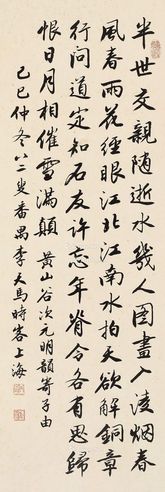 半世交親隨逝水幾人圖畫入淩烟春
風春雨花經眼江北江南水拍天欲解銅章
行問道定知石友許忘年脊令各有思歸
恨日月相催雪滿顛 黃山谷次元明韻寄子由
己巳仲冬八二叟番禺李天馬時客上海